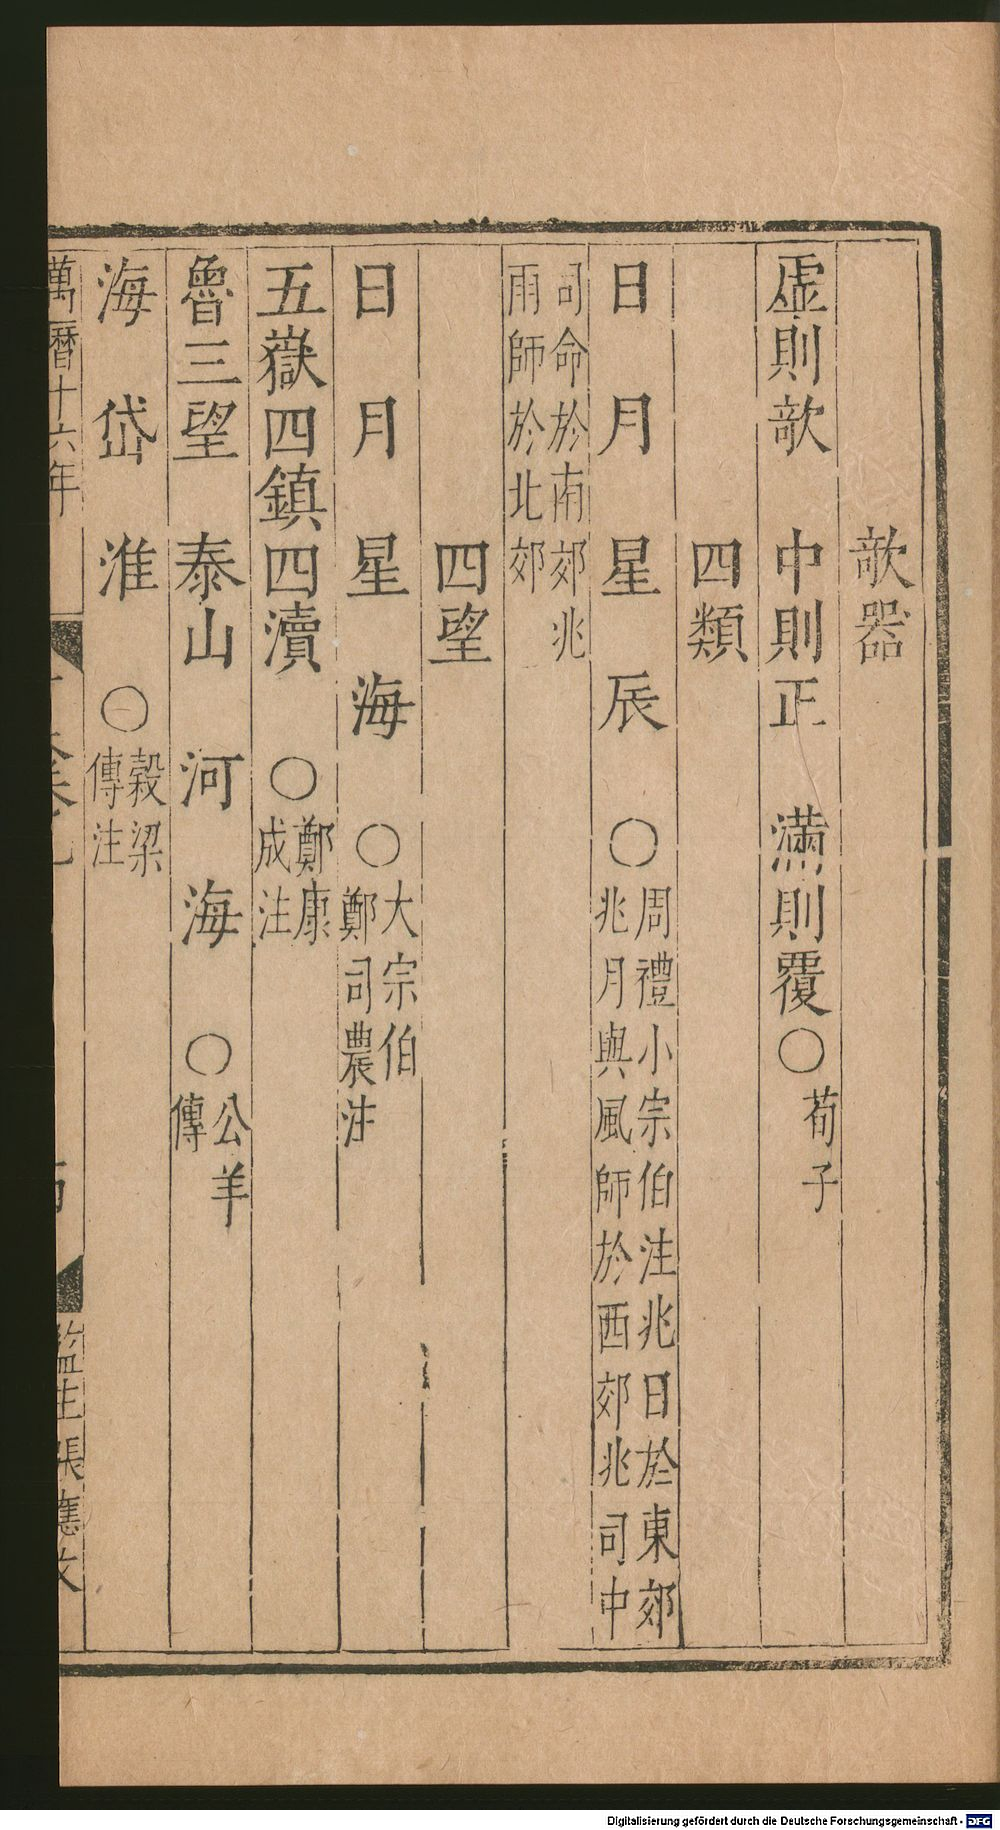 敧器
虛則敧　中則正　滿則覆○荀子
四類
日　月　星　辰　○周禮小宗伯注兆日於東郊
兆月與風師於西郊兆司中
司命於南郊兆
雨師於北郊
四望
日　月　星　海　○大宗伯
鄭司農注
五嶽四鎮四瀆　○鄭康
成注
魯三望　泰山　河　海　○公羊
傳
海　岱　淮　○穀梁
傳注
萬曆十六年
監生張應文
Digitalisierung gefördert durch die Deutsche Forschungsgemeinschaft - DFG